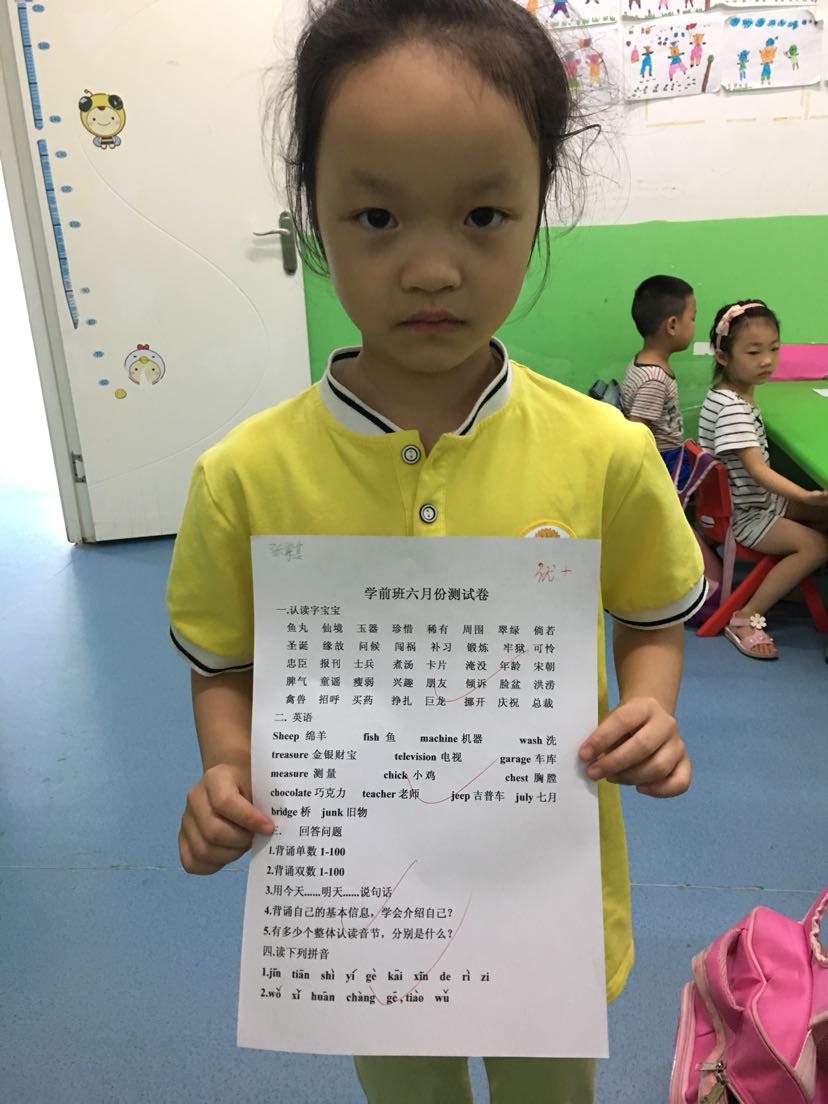 优+
学前班六月份测试卷
一.认读字宝宝
鱼丸 仙境 玉器 珍惜 稀有 周围 翠绿 倘若
圣诞 缘故 问候 闯祸 补习 锻炼 牢狱 可怜
忠臣 报刊 士兵 煮汤 卡片 淹没 年龄 宋朝
脾气 童谣 瘦弱 兴趣 朋友 倾诉 脸盆 洪涝
禽兽 招呼 买药 挣扎 巨龙 挪开 庆祝 总裁
二. 英语
Sheep 绵羊 fish 鱼 machine 机器 wash 洗
treasure 金银财宝 television 电视 garage 车库
measure 测量 chick 小鸡 chest 胸膛
chocolate 巧克力 teacher 老师 jeep 吉普车 july 七月
bridge 桥 junk 旧物
三. 回答问题
1.背诵单数 1-100
2.背诵双数 1-100
3.用今天……明天……说句话
4.背诵自己的基本信息，学会介绍自己？
5.有多少个整体认读音节，分别是什么？
四.读下列拼音
1.jīn tiān shì yí gè kāi xīn de rì zi
2.wǒ xǐ huān chàng gē , tiào wǔ